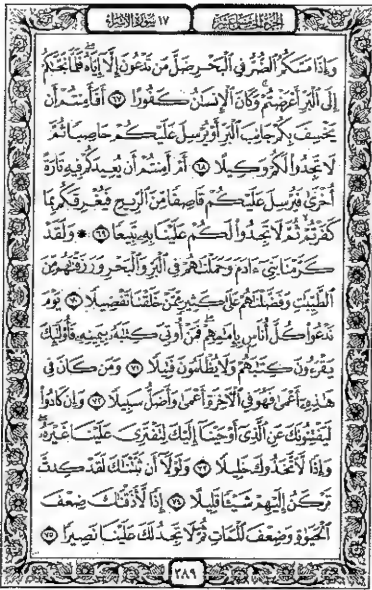 الجزء الخامس عشر ١٧ سورة الإسراء
وَإِذَا مَسَّكُمُ ٱلضُّرُّ فِي ٱلْبَحْرِ ضَلَّ مَن تَدْعُونَ إِلَّآ إِيَّاهُ فَلَمَّا نَجَّىٰكُمْ
إِلَى ٱلْبَرِّ أَعْرَضْتُمْ وَكَانَ ٱلْإِنسَٰنُ كَفُورًا ٦٧ أَفَأَمِنتُمْ أَن
يَخْسِفَ بِكُمْ جَانِبَ ٱلْبَرِّ أَوْ يُرْسِلَ عَلَيْكُمْ حَاصِبًا ثُمَّ
لَا تَجِدُوا۟ لَكُمْ وَكِيلًا ٦٨ أَمْ أَمِنتُمْ أَن يُعِيدَكُمْ فِيهِ تَارَةً
أُخْرَىٰ فَيُرْسِلَ عَلَيْكُمْ قَاصِفًا مِّنَ ٱلرِّيحِ فَيُغْرِقَكُم بِمَا
كَفَرْتُمْ ثُمَّ لَا تَجِدُوا۟ لَكُمْ عَلَيْنَا بِهِۦ تَبِيعًا ٦٩ * وَلَقَدْ
كَرَّمْنَا بَنِىٓ ءَادَمَ وَحَمَلْنَٰهُمْ فِى ٱلْبَرِّ وَٱلْبَحْرِ وَرَزَقْنَٰهُم مِّنَ
ٱلطَّيِّبَٰتِ وَفَضَّلْنَٰهُمْ عَلَىٰ كَثِيرٍ مِّمَّنْ خَلَقْنَا تَفْضِيلًا ٧٠ يَوْمَ
نَدْعُوا۟ كُلَّ أُنَاسٍۭ بِإِمَٰمِهِمْ فَمَنْ أُوتِىَ كِتَٰبَهُۥ بِيَمِينِهِۦ فَأُو۟لَٰٓئِكَ
يَقْرَءُونَ كِتَٰبَهُمْ وَلَا يُظْلَمُونَ فَتِيلًا ٧١ وَمَن كَانَ فِى
هَٰذِهِۦٓ أَعْمَىٰ فَهُوَ فِى ٱلْءَاخِرَةِ أَعْمَىٰ وَأَضَلُّ سَبِيلًا ٧٢ وَإِن كَادُوا۟
لَيَفْتِنُونَكَ عَنِ ٱلَّذِىٓ أَوْحَيْنَآ إِلَيْكَ لِتَفْتَرِىَ عَلَيْنَا غَيْرَهُۥ
وَإِذًا لَّٱتَّخَذُوكَ خَلِيلًا ٧٣ وَلَوْلَآ أَن ثَبَّتْنَٰكَ لَقَدْ كِدتَّ
تَرْكَنُ إِلَيْهِمْ شَيْـًٔا قَلِيلًا ٧٤ إِذًا لَّأَذَقْنَٰكَ ضِعْفَ
ٱلْحَيَوٰةِ وَضِعْفَ ٱلْمَمَاتِ ثُمَّ لَا تَجِدُ لَكَ عَلَيْنَا نَصِيرًا ٧٥
٢٨٩